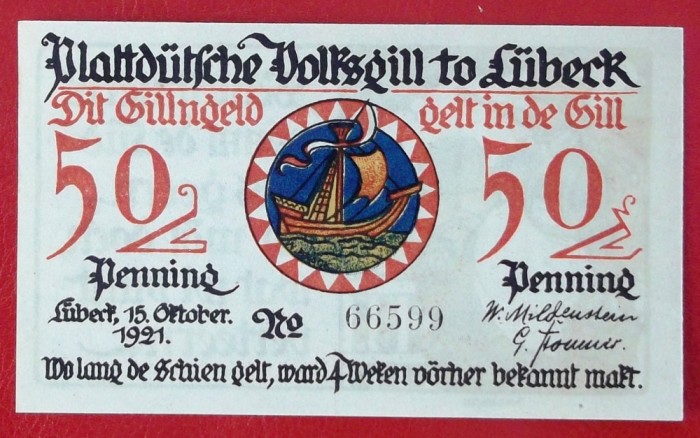 Plattdütsche Volksgill to Lübeck
Dit Gillngeld gelt in de Gill
50 50
Penning Penning
Lübeck, 15. Oktober. 1921. No 66599
W. Mildenstein
Wo lang de Schien gelt, ward 4 Weken vörher bekannt makt.